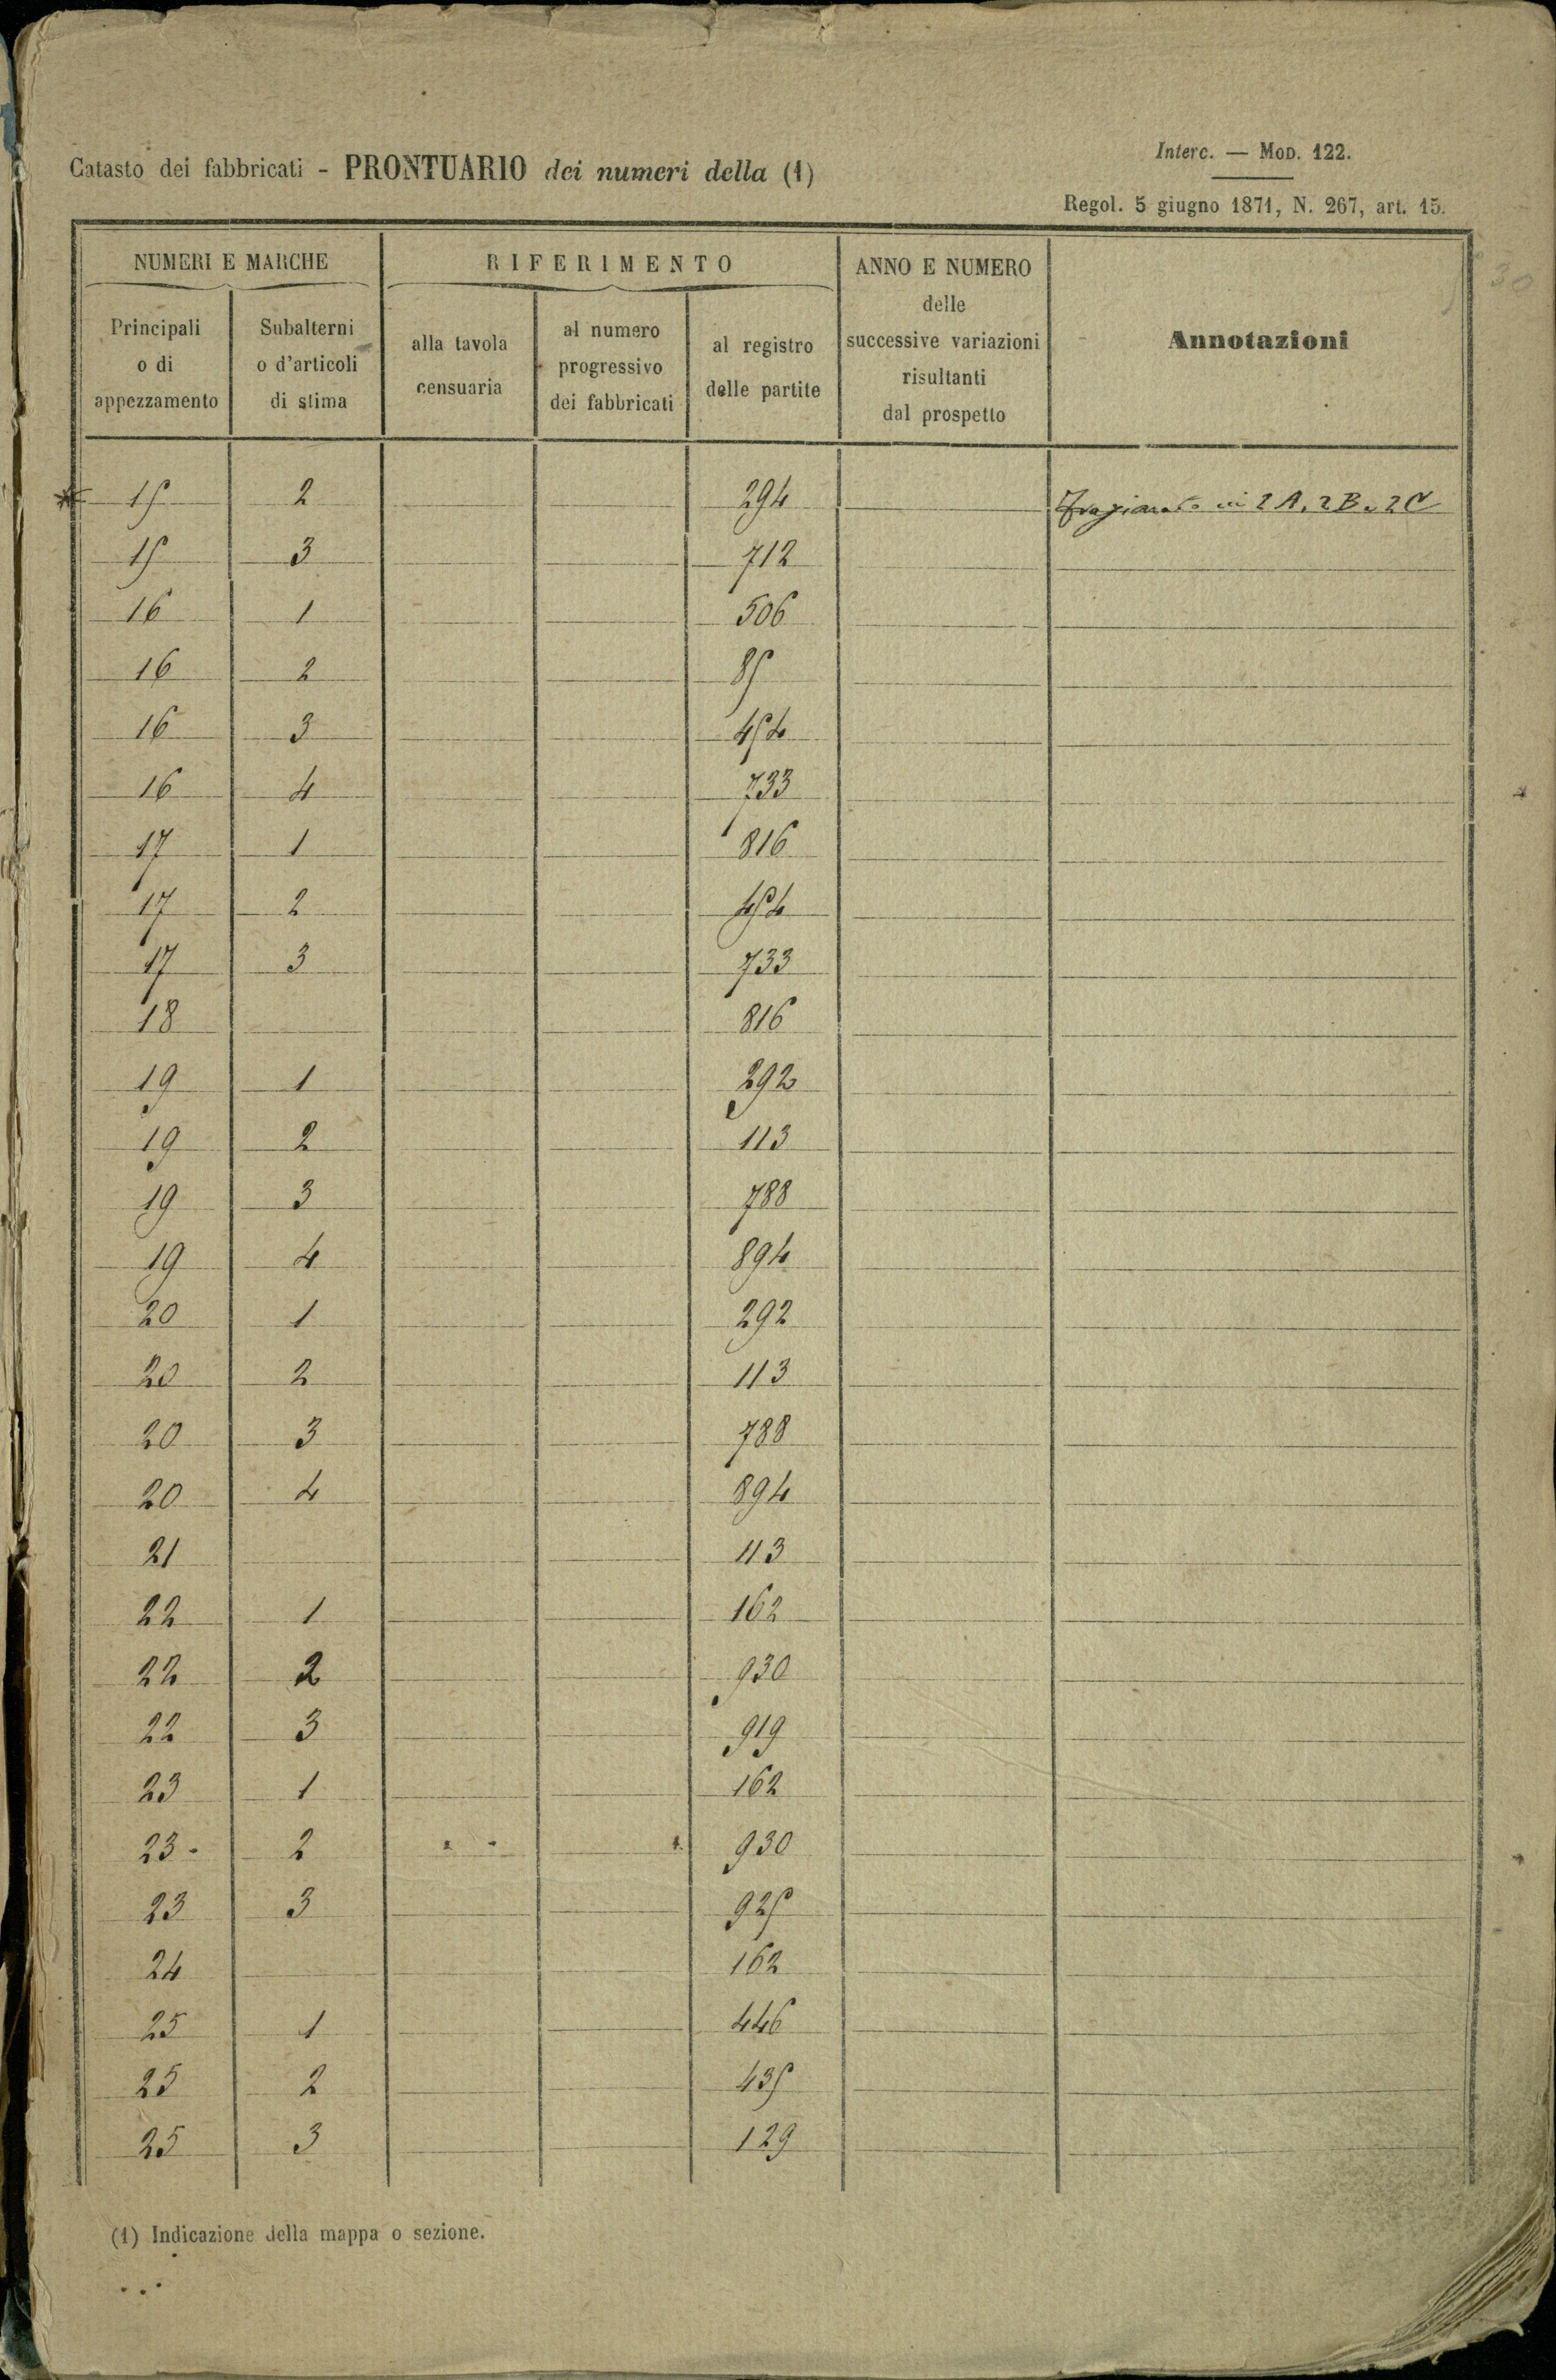 Catasto dei fabbricati - PRONTUARIO dei numeri della (1)
Interc. — MOD. 122.
Regol. 5 giugno 1871, N. 267, art. 15.
NUMERI E MARCHE RIFERIMENTO ANNO E NUMERO delle successive variazioni risultanti dal prospetto Annotazioni
Principali o di appezzamento Subalterni o d'articoli di stima alla tavola censuaria al numero progressivo dei fabbricati al registro delle partite
15 2 294 in 2A, 2B e 2C
15 3 712
16 1 506
16 2 85
16 3 454
16 4 733
17 1 816
17 2 454
17 3 733
18 816
19 1 292
19 2 113
19 3 788
19 4 894
20 1 292
20 2 113
20 3 788
20 4 894
21 113
22 1 162
22 2 930
22 3 919
23 1 162
23 2 930
23 3 925
24 162
25 1 446
25 2 435
25 3 129
(1) Indicazione della mappa o sezione.